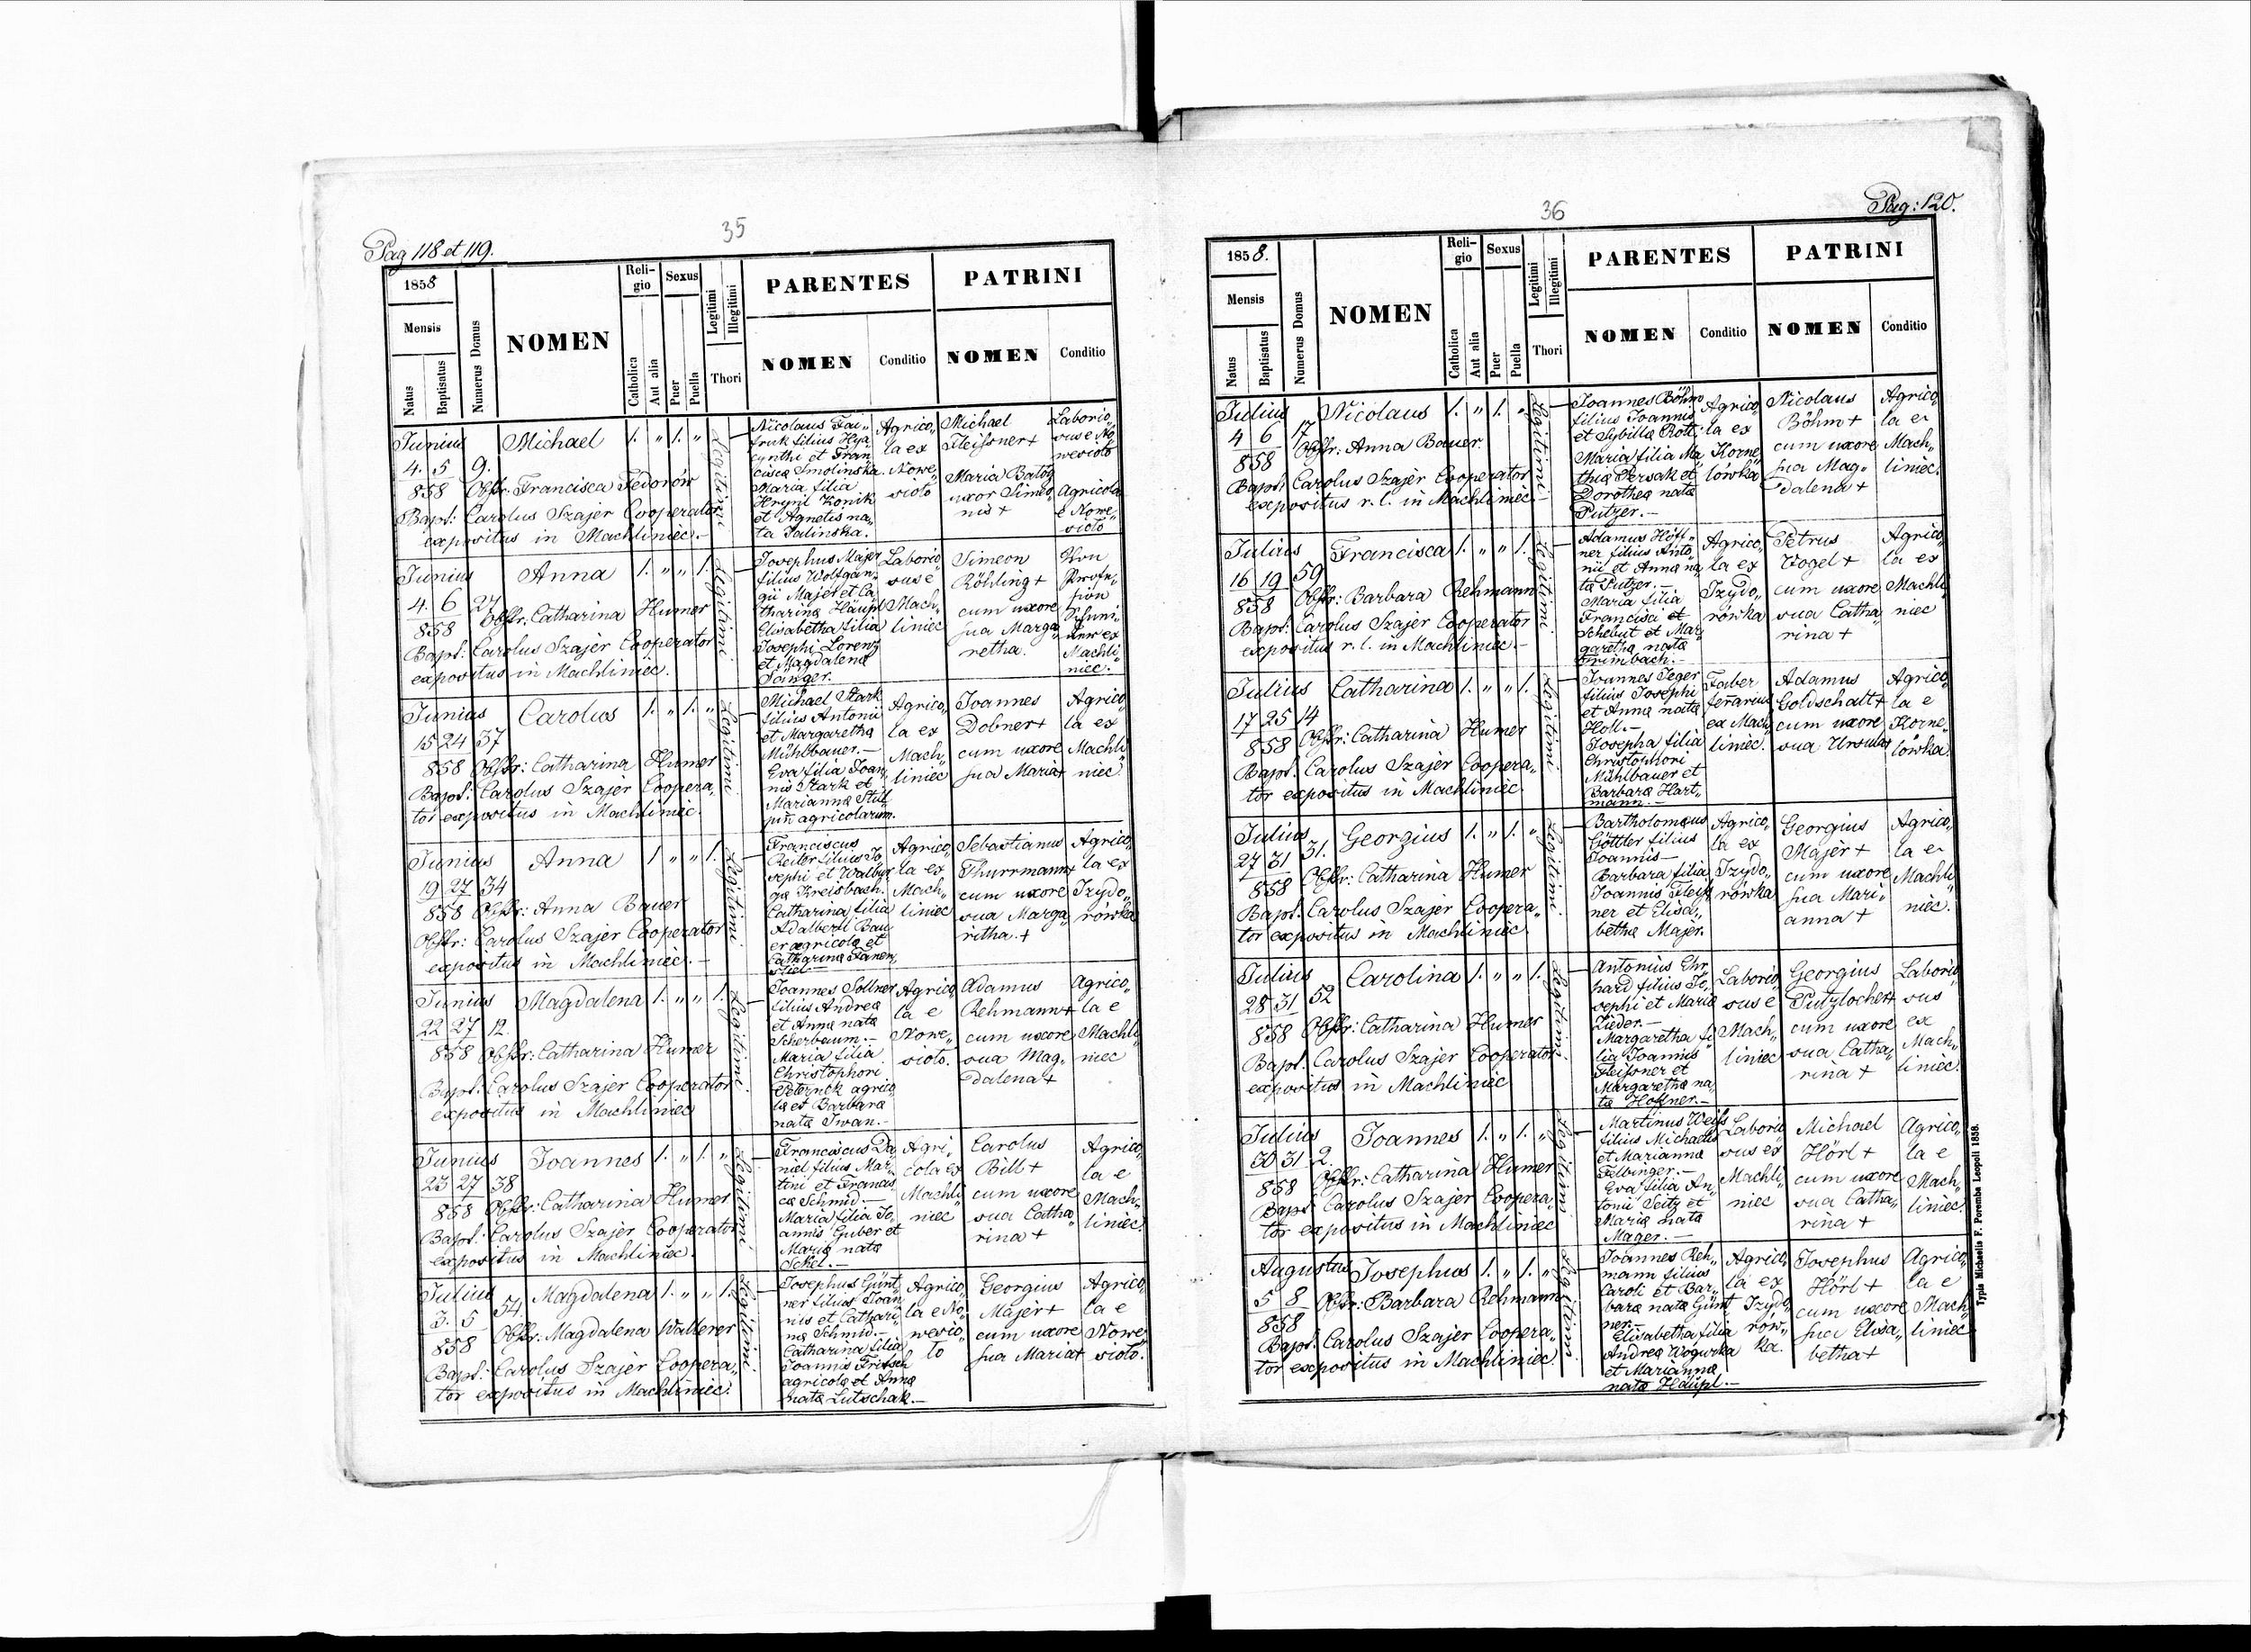 35
Pag 118 et 119.
1858
Mensis
Natus
Baptisatus
Numerus Domus
NOMEN
Religio
Catholica
Aut alia
Sexus
Puer
Puella
Legitimi
Illegitimi
Thori
PARENTES
NOMEN
Conditio
PATRINI
NOMEN
Conditio
Junius
4. 5 9.
858
Michael
1. " 1. "
Obstr: Francisca Fedorów
Bapt: Carolus Szajer Cooperator
expositus in Machliniec.-
Legitimi
Nicolaus
filius Hya
cynthi et Fran
cisca Smolinska
Maria filia
Hrynl Konik
et Agnetis na„
ta Salinska.
Agrico„
la ex
Nowe„
sioło
Michael
Fleißner+
Maria Batog
uxor Simeo
nis +
Laborio„
sus e No
wesioło
Agricola
e Nowe„
sioło
Junius
4. 6 27
858
Anna
1. " " 1.
Obstr: Catharina Humer
Bapt: Carolus Szajer Cooperator
expositus in Machliniec.
Legitimi
Josephus Majer
filius Wolfgan„
gii Majer et Ca
tharina Häupl
Elisabetha filia
Josephi Lorenz
et Magdalena
Sanger.
Laborio„
sus e
Mach„
liniec
Simeon
Röhling+
cum uxore
sua Marga
retha.
Machli
niec.
Junius
15 24 37
858
Carolus
1. " 1. "
Obstr: Catharina Humer
Bapt: Carolus Szajer Coopera„
tor expositus in Machliniec.
Legitimi
Michael Stark
filius Antonii
et Margaretha
Mühlbauer.-
Eva filia Joan„
nis Stark et
Marianna
agricolarum.
Agrico„
la ex
Mach„
liniec
Joannes
Dobner+
cum uxore
sua Maria+
Agrico„
la ex
Machli„
niec
Junius
19 27 34
858
Anna
1 " " 1.
Obstr: Anna Bauer
Obstr: Carolus Szajer Cooperator
expositus in Machliniec.-
Legitimi
Franciscus
Reitor filius Jo„
sephi et Walbur
ga Kreisbach.
Catharina filia
Adalberti Bau
er agricola et
Catharina
Agrico„
la ex
Mach„
liniec
Sebastianus
Thurrmann+
cum uxore
sua Marga„
retha.+
Agrico„
la ex
Izydo„
rówka
Junius
22 27 12.
858
Magdalena
1. " " 1.
Obstr: Catharina Humer
Bapt: Carolus Szajer Cooperator
expositus in Machliniec
Legitimi
Joannes Sollner
filius Andrea
et Anna nata
Scherbaum.-
Maria filia
Christophori
agrico„
la et Barbara
nata Iwan.-
Agrico„
la e
Nowe„
sioło.
Adamus
Rehmann+
cum uxore
sua Mag„
dalena+
Agrico„
la e
Machli„
niec
Junius
23 27 38
858
Joannes
1. " 1. "
Obstr: Catharina Humer
Bapt: Carolus Szajer Cooperator
expositus in Machliniec.
Legitimi
Franciscus Da
niel filius Mar„
tini et Francis
ca Schmid.-
Maria filia Jo„
annis Guber et
Maria nata
Schel.-
Agri„
cola ex
Machli„
niec
Carolus
Bill+
cum uxore
sua Catha„
rina+
Agrico„
la e
Mach„
liniec.
Julius
3. 5 54.
858
Magdalena
1. " " 1.
Obstr: Magdalena Wallerer
Bapt: Carolus Szajer Coopera„
tor expositus in Machliniec.
Legitimi
Josephus Günt
ner filius Joan
nis et Cathari„
na Schmid.-
Catharina filia
Joannis Fritsch
agricola et Anna
nata Lutschak.-
Agrico„
la e No„
wesio„
ło
Georgius
Majer+
cum uxore
sua Maria+
Agrico„
la e
Nowe„
sioło.
36
Pag: 120.
1858.
Mensis
Natus
Baptisatus
Numerus Domus
NOMEN
Religio
Catholica
Aut alia
Sexus
Puer
Puella
Legitimi
Illegitimi
Thori
PARENTES
NOMEN
Conditio
PATRINI
NOMEN
Conditio
Julius
4 6 17
858
Nicolaus
1. " 1. "
Obstr: Anna Bauer.
Bapt: Carolus Szajer Cooperator
expositus r. l. in Machliniec
Legitimi
Joannes Böhm
filius Joannis
et Sybilla Rott:
Maria filia Ma„
thia Persak et
Dorothea nata
Putzer.-
Agrico„
la ex
Korne„
lówka
Nicolaus
Böhm+
cum uxore
sua Mag„
dalena+
Agrico„
la e
Mach„
liniec.
Julius
16 19 59
858
Francisca
1. " " 1.
Obstr: Barbara Rehmann
Bapt: Carolus Szajer Cooperator
expositus r. l. in Machliniec.-
Legitimi
Adamus Höff„
ner filius Anto„
nii et Anna na„
ta Putzer.-
Maria filia
Francisci et
Schebut et Mar„
garetha nata
Trimbach.-
Agrico„
la ex
Izydo„
rówka
Petrus
Vogel+
cum uxore
sua Catha„
rina+
Agrico„
la ex
Machli„
niec
Julius
17 25 14
858
Catharina
1. " " 1.
Obstr: Catharina Humer
Bapt: Carolus Szajer Coopera„
tor expositus in Machliniec.
Legitimi
Joannes Jeger
filius Josephi
et Anna nata
Holl.-
Josepha filia
Christophori
Mühlbauer et
Barbara Hart„
mann.-
Faber
ferrarius
ex Mach„
liniec.
Adamus
Goldschalt+
cum uxore
sua Ursula+
Agrico„
la e
Korne„
lówka.
Julius
27 31 31.
858
Georgius
1. " 1. "
Obstr: Catharina Humer
Bapt: Carolus Szajer Coopera„
tor expositus in Machliniec.
Legitimi
Bartholomæus
Göttler filius
Joannis-
Barbara filia
Joannis Fleiß
ner et Elisa„
betha Majer.
Agrico„
la ex
Izydo„
rówka
Georgius
Majer+
cum uxore
sua Mari„
anna+
Agrico„
la e
Machli„
niec.
Julius
28 31 52
858
Carolina
1. " " 1.
Obstr: Catharina Humer
Bapt: Carolus Szajer Cooperator
expositus in Machliniec
Legitimi
Antonius Ehr„
hard filius Jo„
sephi et Maria
Zieder.-
Margaretha fi
lia Joannis
Fleißner et
Margaretha na„
ta Hoffner.-
Laborio„
sus e
Mach„
liniec
Georgius
Putzlocher+
cum uxore
sua Catha„
rina+
Laborio„
sus
ex
Mach„
liniec.
Julius
30 31 2.
858
Joannes
1. " 1. "
Obstr: Catharina Humer
Bapt: Carolus Szajer Coopera„
tor expositus in Machliniec
Legitimi
Martinus Weiß
filius Michaelis
et Marianna
Felbinger.-
Eva filia An„
tonii Seitz et
Maria nata
Mager.-
Laborio„
sus ex
Machli„
niec
Michael
Hörl+
cum uxore
sua Catha„
rina+
Agrico„
la e
Mach„
liniec.
Augustus
5 8
858
Josephus
1. " 1. "
Obstr: Barbara Rehmann
Bapt: Carolus Szajer Coopera„
tor expositus in Machliniec.
Legitimi
Joannes Reh„
mann filius
Caroli et Bar„
bara nata Günt
ner.-
Elisabetha filia
Andrea Wogurka
et Marianna
nata Häupl.-
Agrico„
la ex
Izydo„
rów„
ka.
Josephus
Hörl+
cum uxore
sua Elisa„
betha+
Agrico„
la e
Mach„
liniec
Typis Michaelis F. Poremba Leopoli 1858.